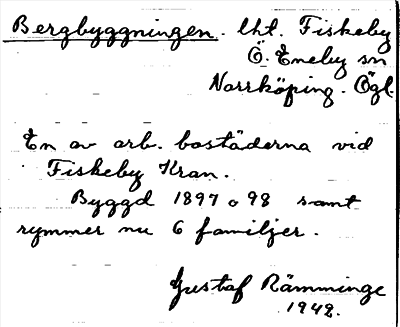 Bergbyggningen. lht. Fiskeby
Ö. Eneby sn
Norrköping. Ögl.
En av arb. bostäderna vid
Fiskeby Kran.
Byggd 1897 o 98 samt
rymmer nu 6 familjer.
Gustaf Rämminge
1942.